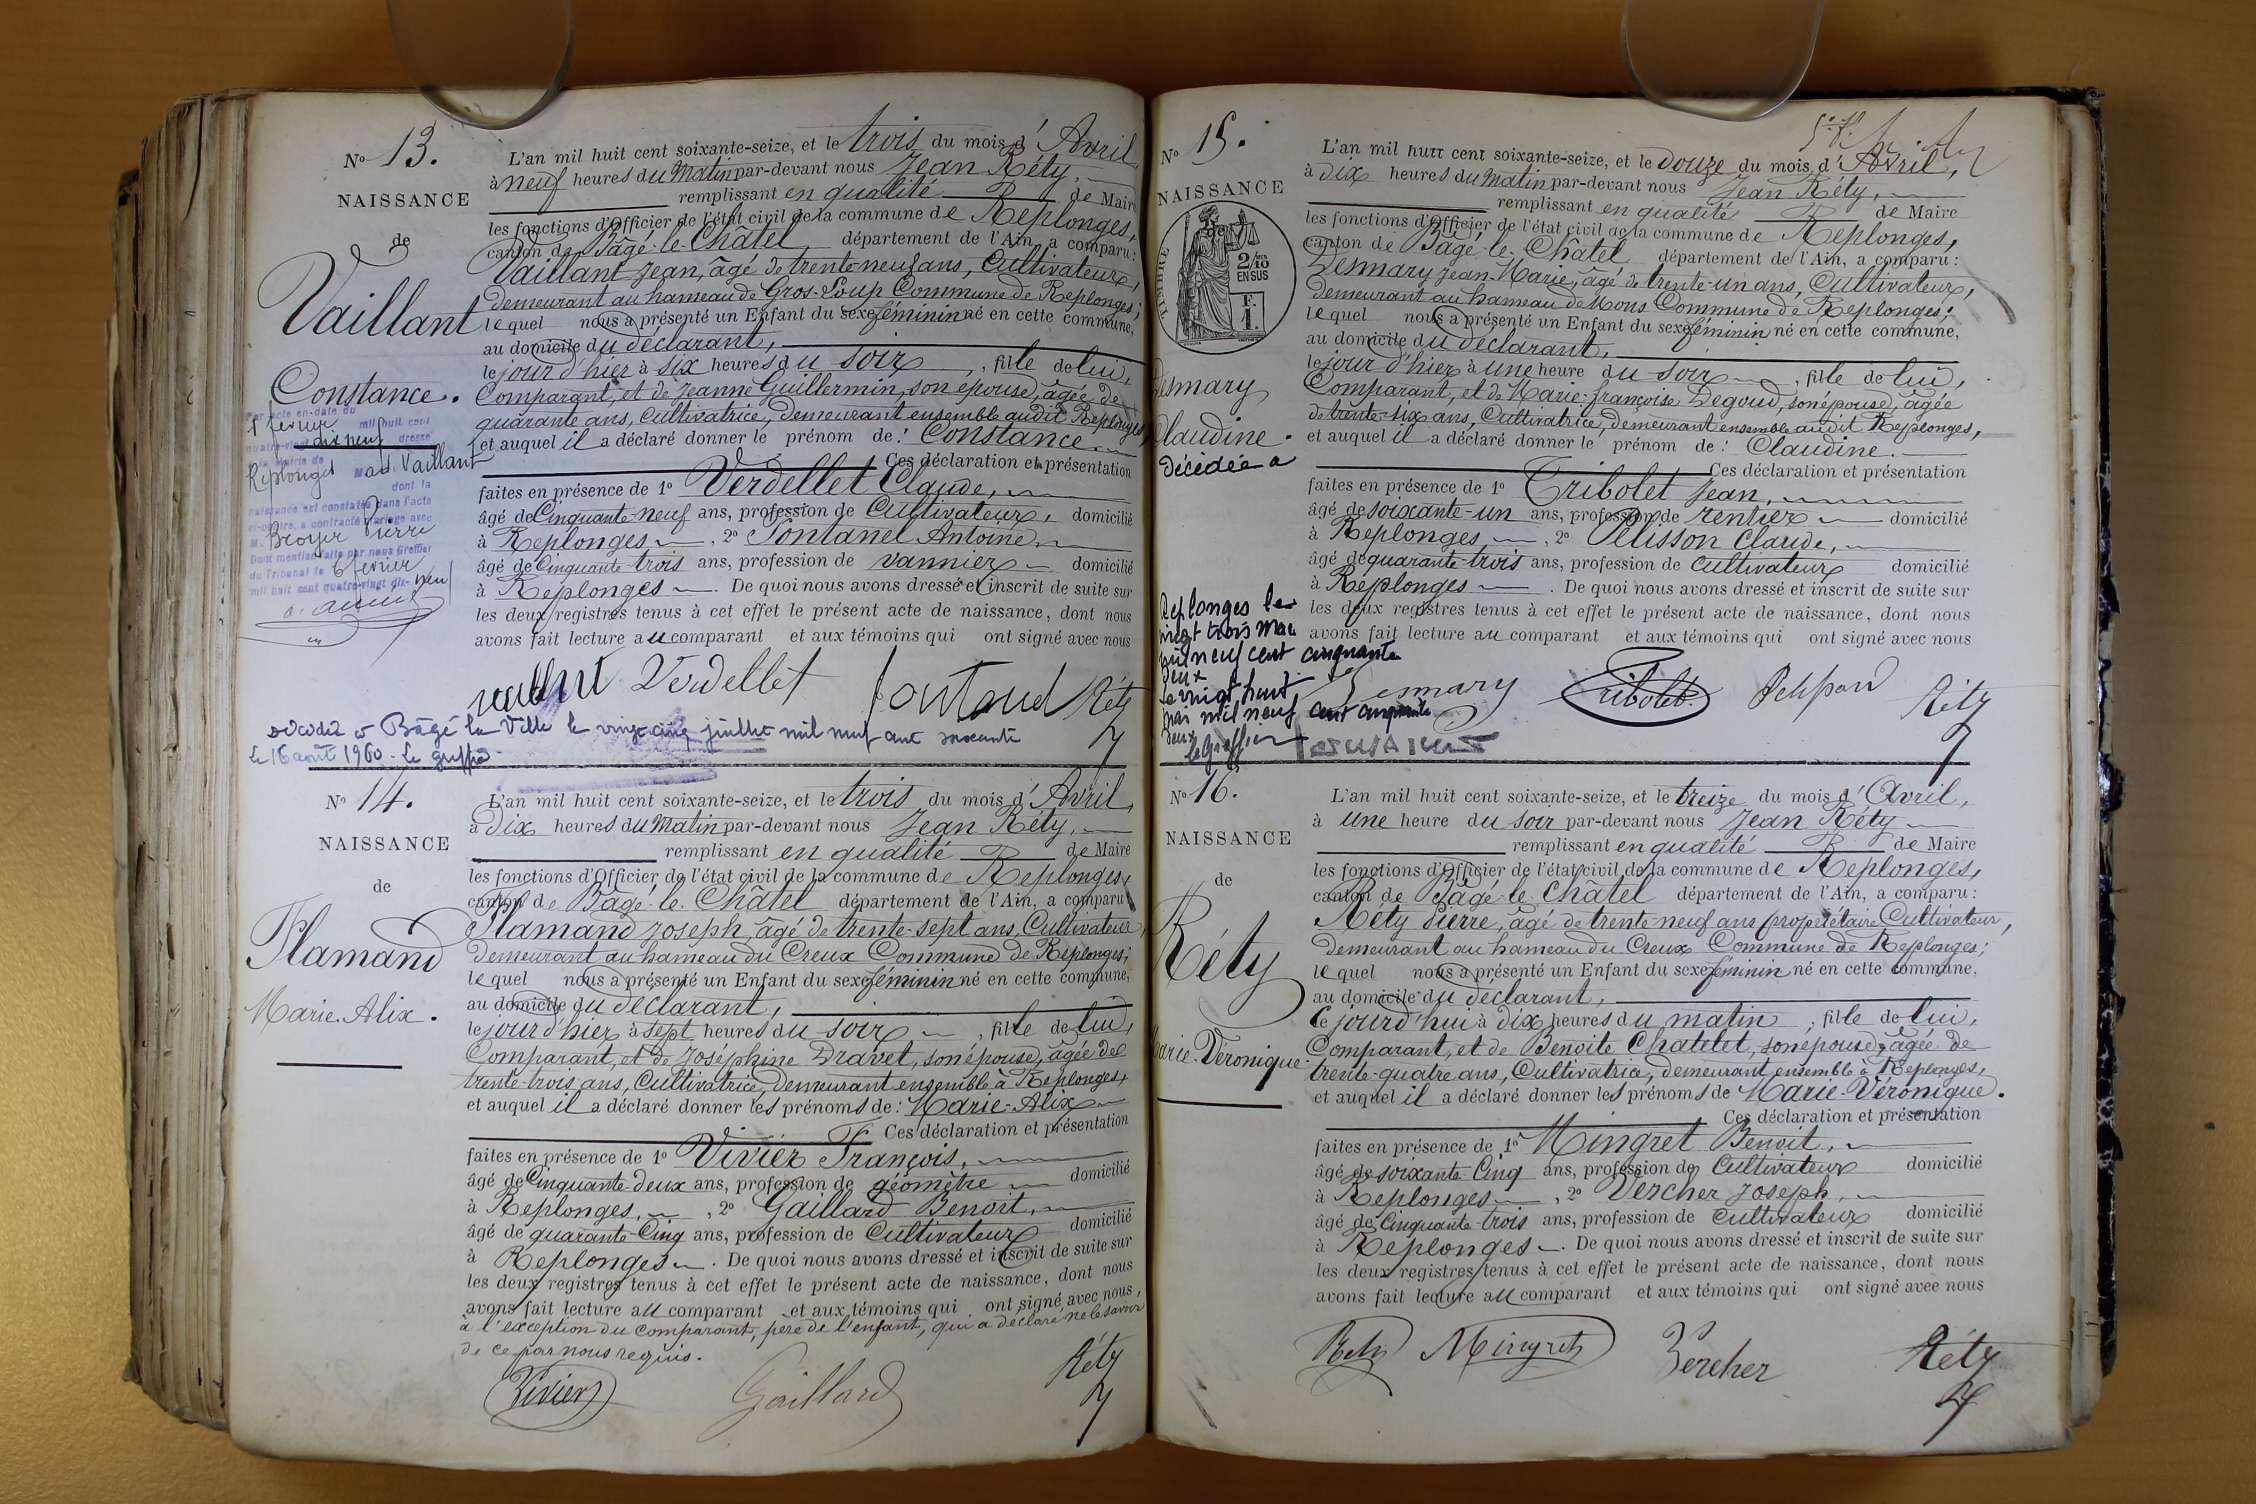 N° 13.
NAISSANCE
de
Vaillant
Constance.
Par acte en date du
1er février mil huit cent
quatre-vingt dix neuf dressé
Mairie de
Replonges Mad. Vaillant
dont la
naissance est constatée dans l'acte
ci-contre, a contracté mariage avec
M. Broyer Pierre
Dont mention faite par nous Greffier
du Tribunal le 6 février
mil huit cent quatre-vingt dix-neuf
L'an mil huit cent soixante-seize, et le trois du mois d'Avril,
à neuf heures du matin par-devant nous Jean Réty,
remplissant en qualité de Maire
les fonctions d'Officier de l'état civil de la commune de Replonges,
canton de Bâgé-le-Châtel département de l'Ain, a comparu:
Vaillant Jean, âgé de trente-neuf ans, Cultivateur,
demeurant au hameau de Gros-Loup Commune de Replonges;
lequel nous a présenté un Enfant du sexe féminin né en cette commune,
au domicile du déclarant,
le jour d'hier à six heures du soir, fille de lui,
Comparant, et de Jeanne Guillermin, son épouse, âgée de
quarante ans, Cultivatrice, demeurant ensemble audit Replonges,
et auquel il a déclaré donner le prénom de: Constance.
Ces déclaration et présentation
faites en présence de 1° Verdellet Claude,
âgé de Cinquante-neuf ans, profession de Cultivateur, domicilié
à Replonges, 2° Fontanel Antoine
âgé de Cinquante-trois ans, profession de vannier domicilié
à Replonges. De quoi nous avons dressé et inscrit de suite sur
les deux registres tenus à cet effet le présent acte de naissance, dont nous
avons fait lecture au comparant et aux témoins qui ont signé avec nous
Verdellet Réty
décédée à Bâgé la Ville le vingt cinq juillet mil neuf cent soixante
le 16 août 1960 - Le greffier
N° 14.
NAISSANCE
de
Flamand
Marie-Alix.
L'an mil huit cent soixante-seize, et le trois du mois d'Avril,
à dix heures du matin par-devant nous Jean Réty,
remplissant en qualité de Maire
les fonctions d'Officier de l'état civil de la commune de Replonges,
canton de Bâgé-le-Châtel département de l'Ain, a comparu
Flamand Joseph, âgé de trente-sept ans, Cultivateur,
demeurant au hameau du Creux Commune de Replonges;
lequel nous a présenté un Enfant du sexe féminin né en cette commune,
au domicile du déclarant,
le jour d'hier à sept heures du soir, fille de lui,
Comparant, et de Joséphine Dravet, son épouse, âgée de
trente-trois ans, Cultivatrice, demeurant ensemble à Replonges,
et auquel il a déclaré donner les prénoms de: Marie-Alix
Ces déclaration et présentation
faites en présence de 1° Vivier François,
âgé de Cinquante-deux ans, profession de géomètre domicilié
à Replonges, 2° Gaillard Benoit,
âgé de quarante-Cinq ans, profession de Cultivateur domicilié
à Replonges. De quoi nous avons dressé et inscrit de suite sur
les deux registres tenus à cet effet le présent acte de naissance, dont nous
avons fait lecture au comparant et aux témoins qui ont signé avec nous,
à l'exception du comparant, père de l'enfant, qui a déclaré ne le savoir
de ce par nous requis.
Vivier Gaillard Réty
N° 15.
NAISSANCE
TIMBRE
2/10
EN SUS
F.
1.
Desmary
Claudine.
Décédée à
Replonges le
vingt trois Mai
mil neuf cent cinquante
deux
Le vingt huit
mai mil neuf cent cinquante
deux
Le Greffier
L'an mil huit cent soixante-seize, et le douze du mois d'Avril,
à dix heures du matin par-devant nous Jean Réty,
remplissant en qualité de Maire
les fonctions d'Officier de l'état civil de la commune de Replonges,
canton de Bâgé-le-Châtel département de l'Ain, a comparu:
Desmary Jean-Marie, âgé de trente-un ans, Cultivateur,
demeurant au hameau de Mons Commune de Replonges;
lequel nous a présenté un Enfant du sexe féminin né en cette commune,
au domicile du déclarant,
le jour d'hier à une heure du soir, fille de lui,
Comparant, et de Marie-françoise Degoud, son épouse, âgée
de trente-six ans, Cultivatrice, demeurant ensemble audit Replonges,
et auquel il a déclaré donner le prénom de: Claudine.
Ces déclaration et présentation
faites en présence de 1° Tribolet Jean,
âgé de soixante-un ans, profession de rentier domicilié
à Replonges, 2° Pélisson Claude,
âgé de quarante-trois ans, profession de cultivateur domicilié
à Replonges. De quoi nous avons dressé et inscrit de suite sur
les deux registres tenus à cet effet le présent acte de naissance, dont nous
avons fait lecture au comparant et aux témoins qui ont signé avec nous
Desmary Tribolet Réty
N° 16.
NAISSANCE
de
Réty
Marie-Véronique.
L'an mil huit cent soixante-seize, et le treize du mois d'Avril,
à une heure du soir par-devant nous Jean Réty
remplissant en qualité de Maire
les fonctions d'Officier de l'état civil de la commune de Replonges,
canton de Bâgé-le-Châtel département de l'Ain, a comparu:
Réty Pierre, âgé de trente-neuf ans propriétaire Cultivateur,
demeurant au hameau du Creux Commune de Replonges;
lequel nous a présenté un Enfant du sexe féminin né en cette commune,
au domicile du déclarant,
Ce jourd'hui à dix heures du matin, fille de lui,
Comparant, et de Benoite Chatelet, son épouse, âgée de
trente-quatre ans, Cultivatrice, demeurant ensemble à Replonges,
et auquel il a déclaré donner les prénoms de Marie-Véronique.
Ces déclaration et présentation
faites en présence de 1° Mingret Benoit,
âgé de soixante-Cinq ans, profession de Cultivateur domicilié
à Replonges, 2° Vercher Joseph,
âgé de Cinquante-trois ans, profession de cultivateur domicilié
à Replonges. De quoi nous avons dressé et inscrit de suite sur
les deux registres tenus à cet effet le présent acte de naissance, dont nous
avons fait lecture au comparant et aux témoins qui ont signé avec nous
Réty Mingret Vercher Réty